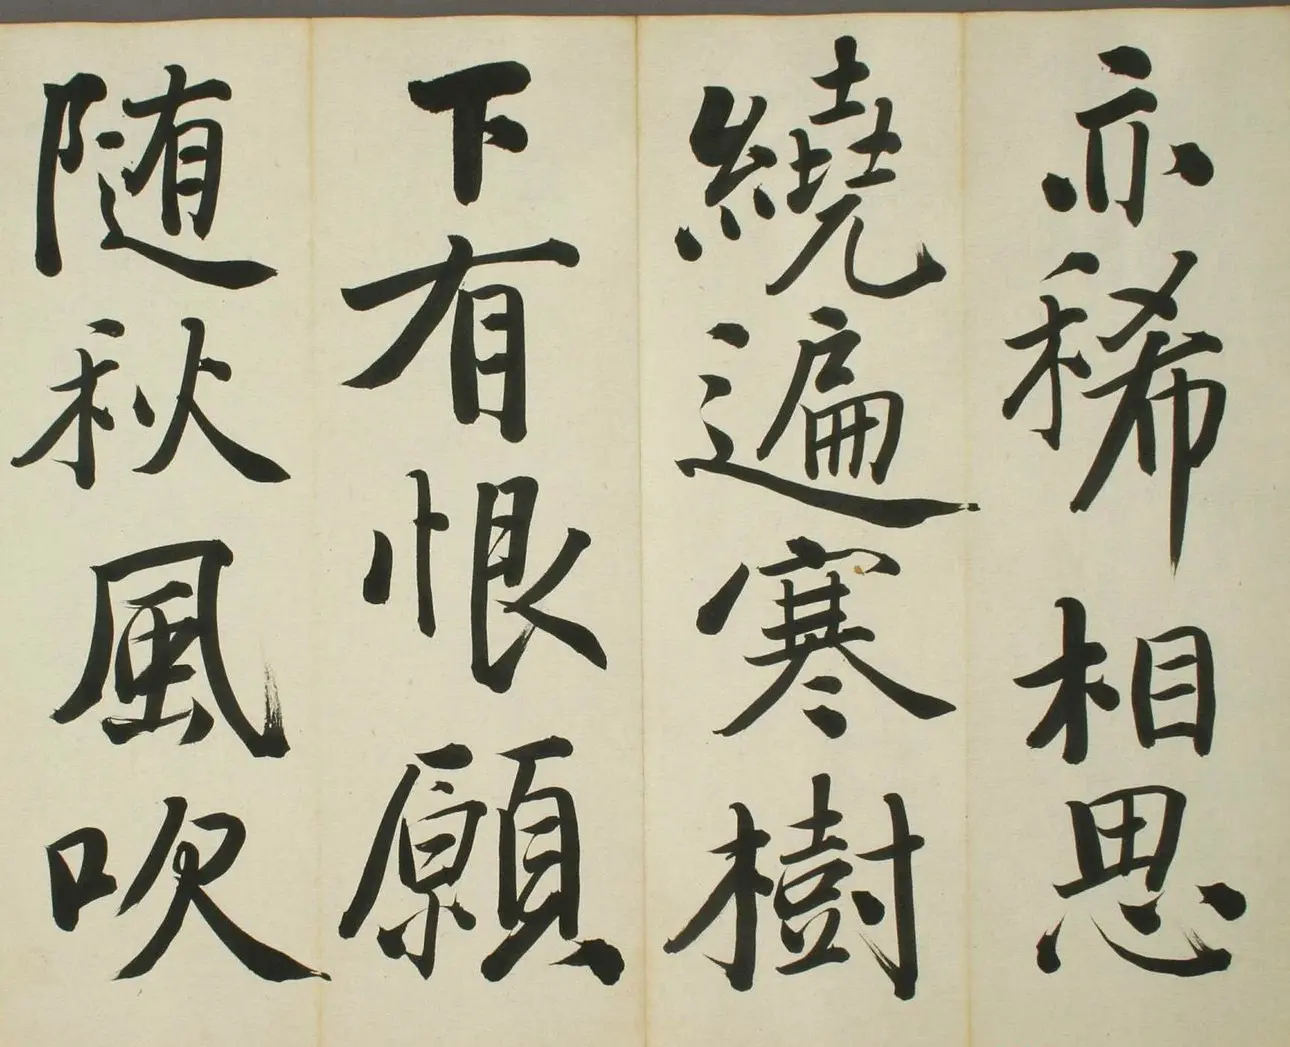 亦稀相思
繞遍寒樹
下有恨願
随秋風吹